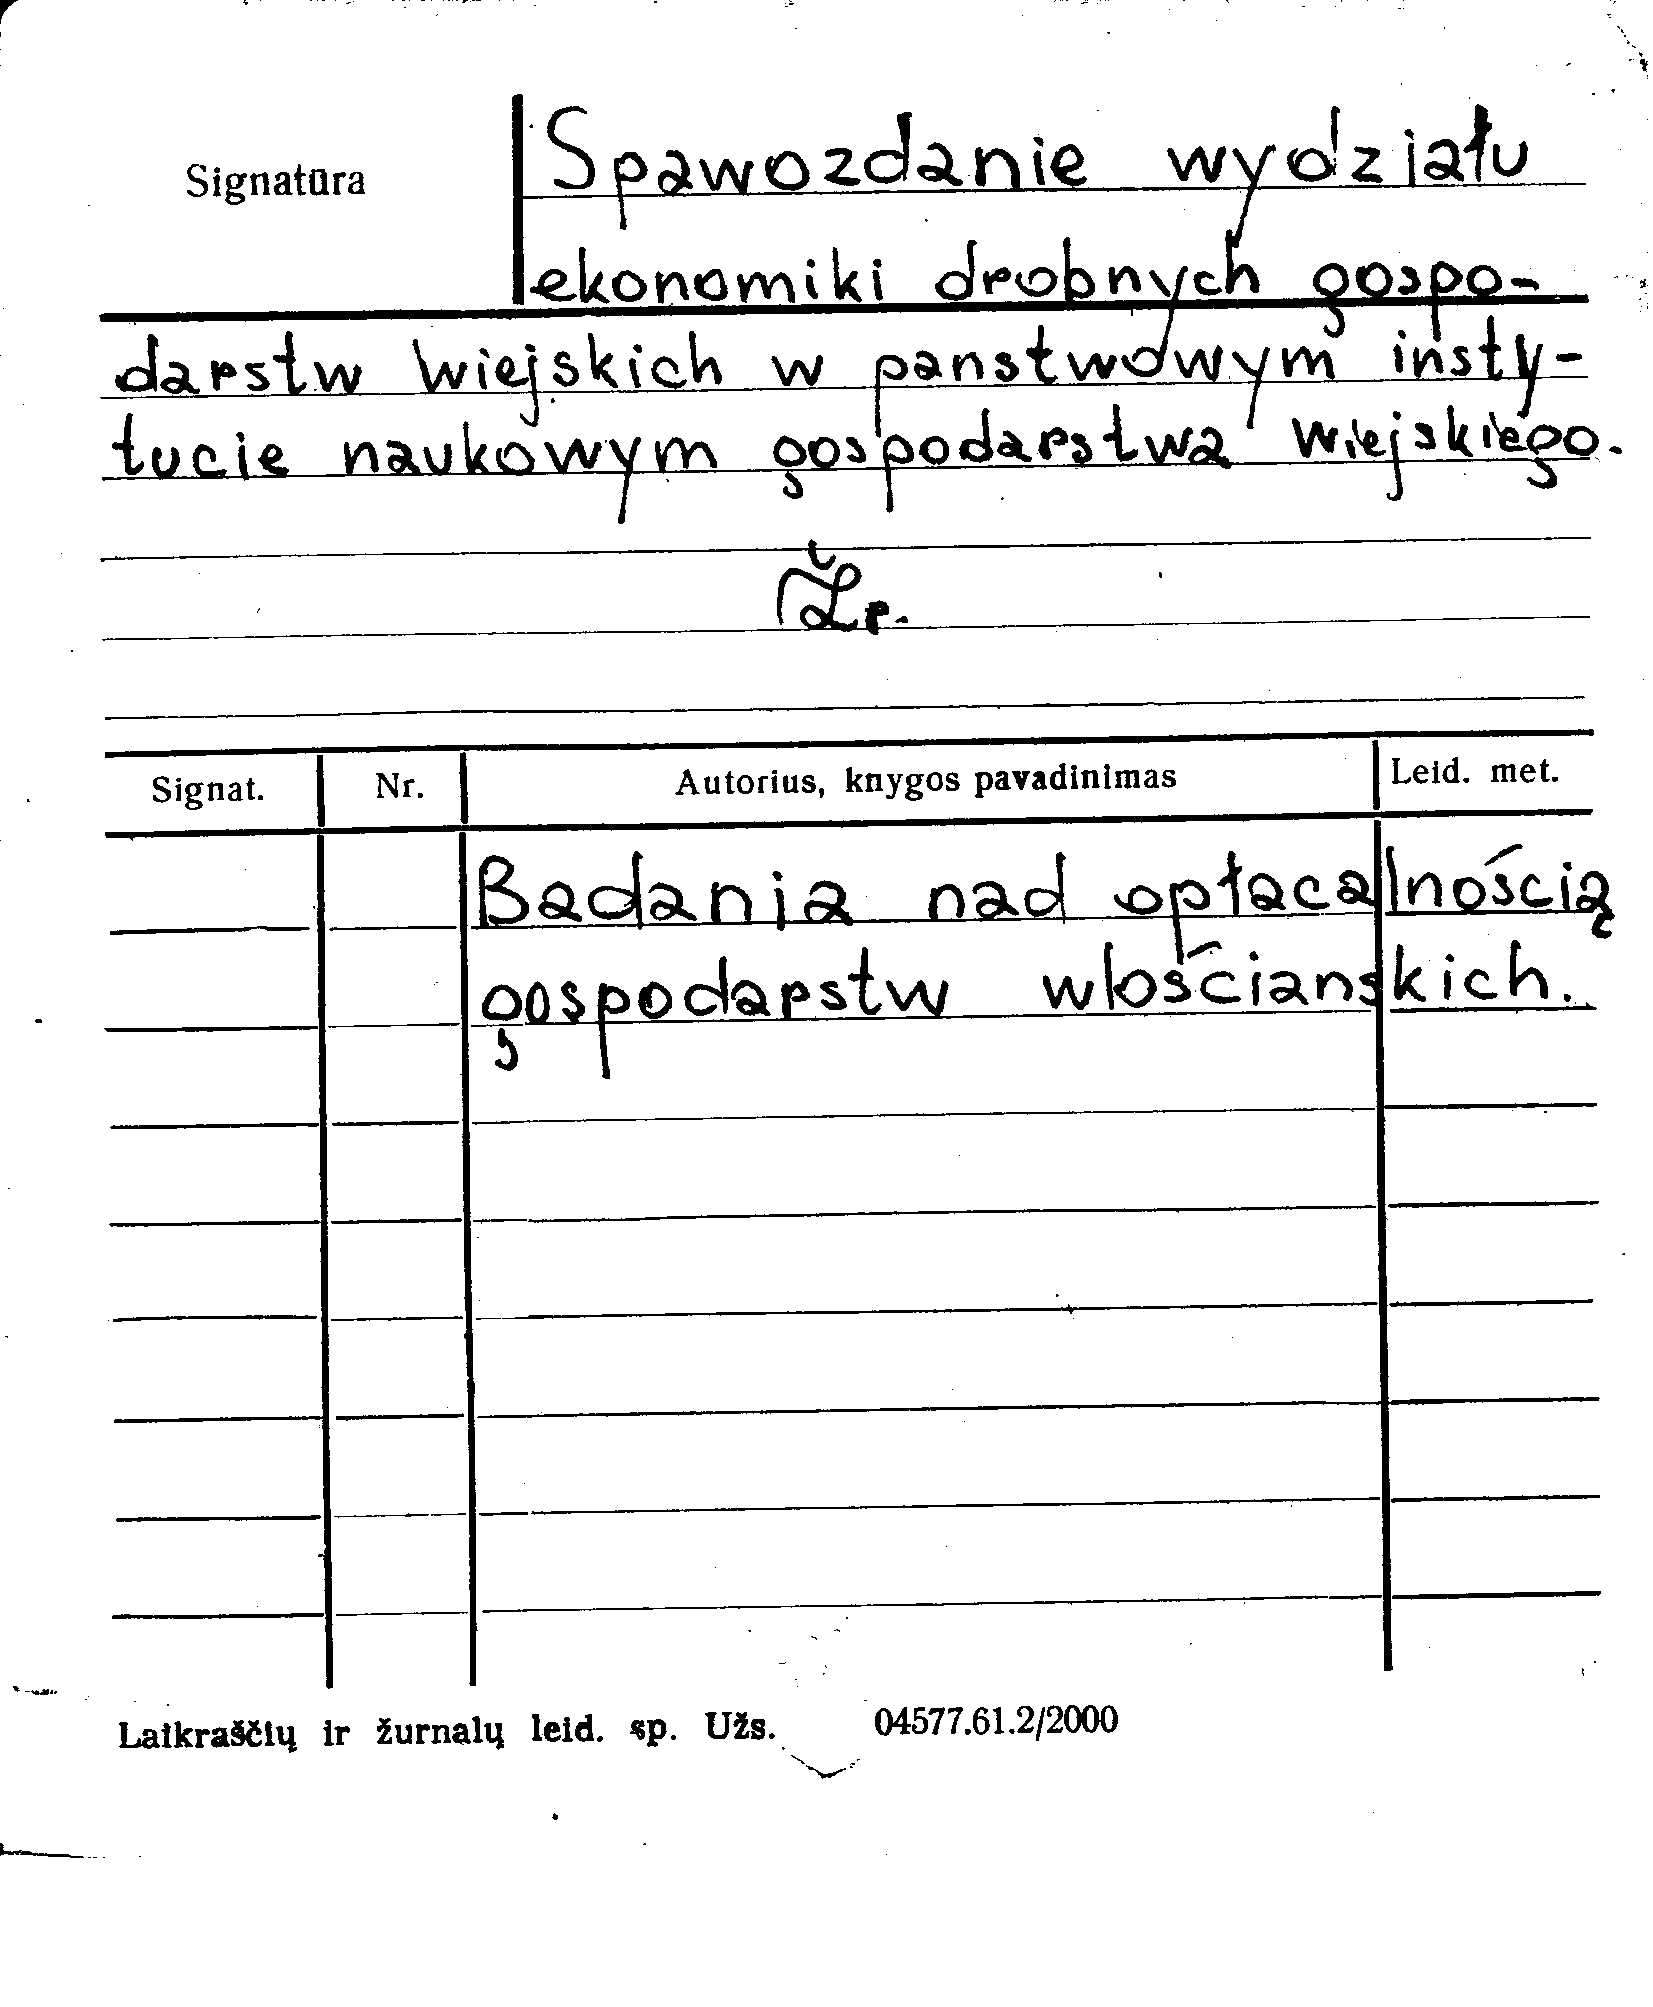 Signatūra
Spawozdanie wydziału
ekonomiki drobnych gospo-
darstw wiejskich w panstwowym insty-
tucie naukowym gospodarstwa wiejskiego.
Žr.
Signat. Nr. Autorius, knygos pavadinimas Leid. met.
Badania nad opłacalnością
gospodarstw włościanskich.
Laikraščių ir žurnalų leid. sp. Užs. 04577.61.2/2000